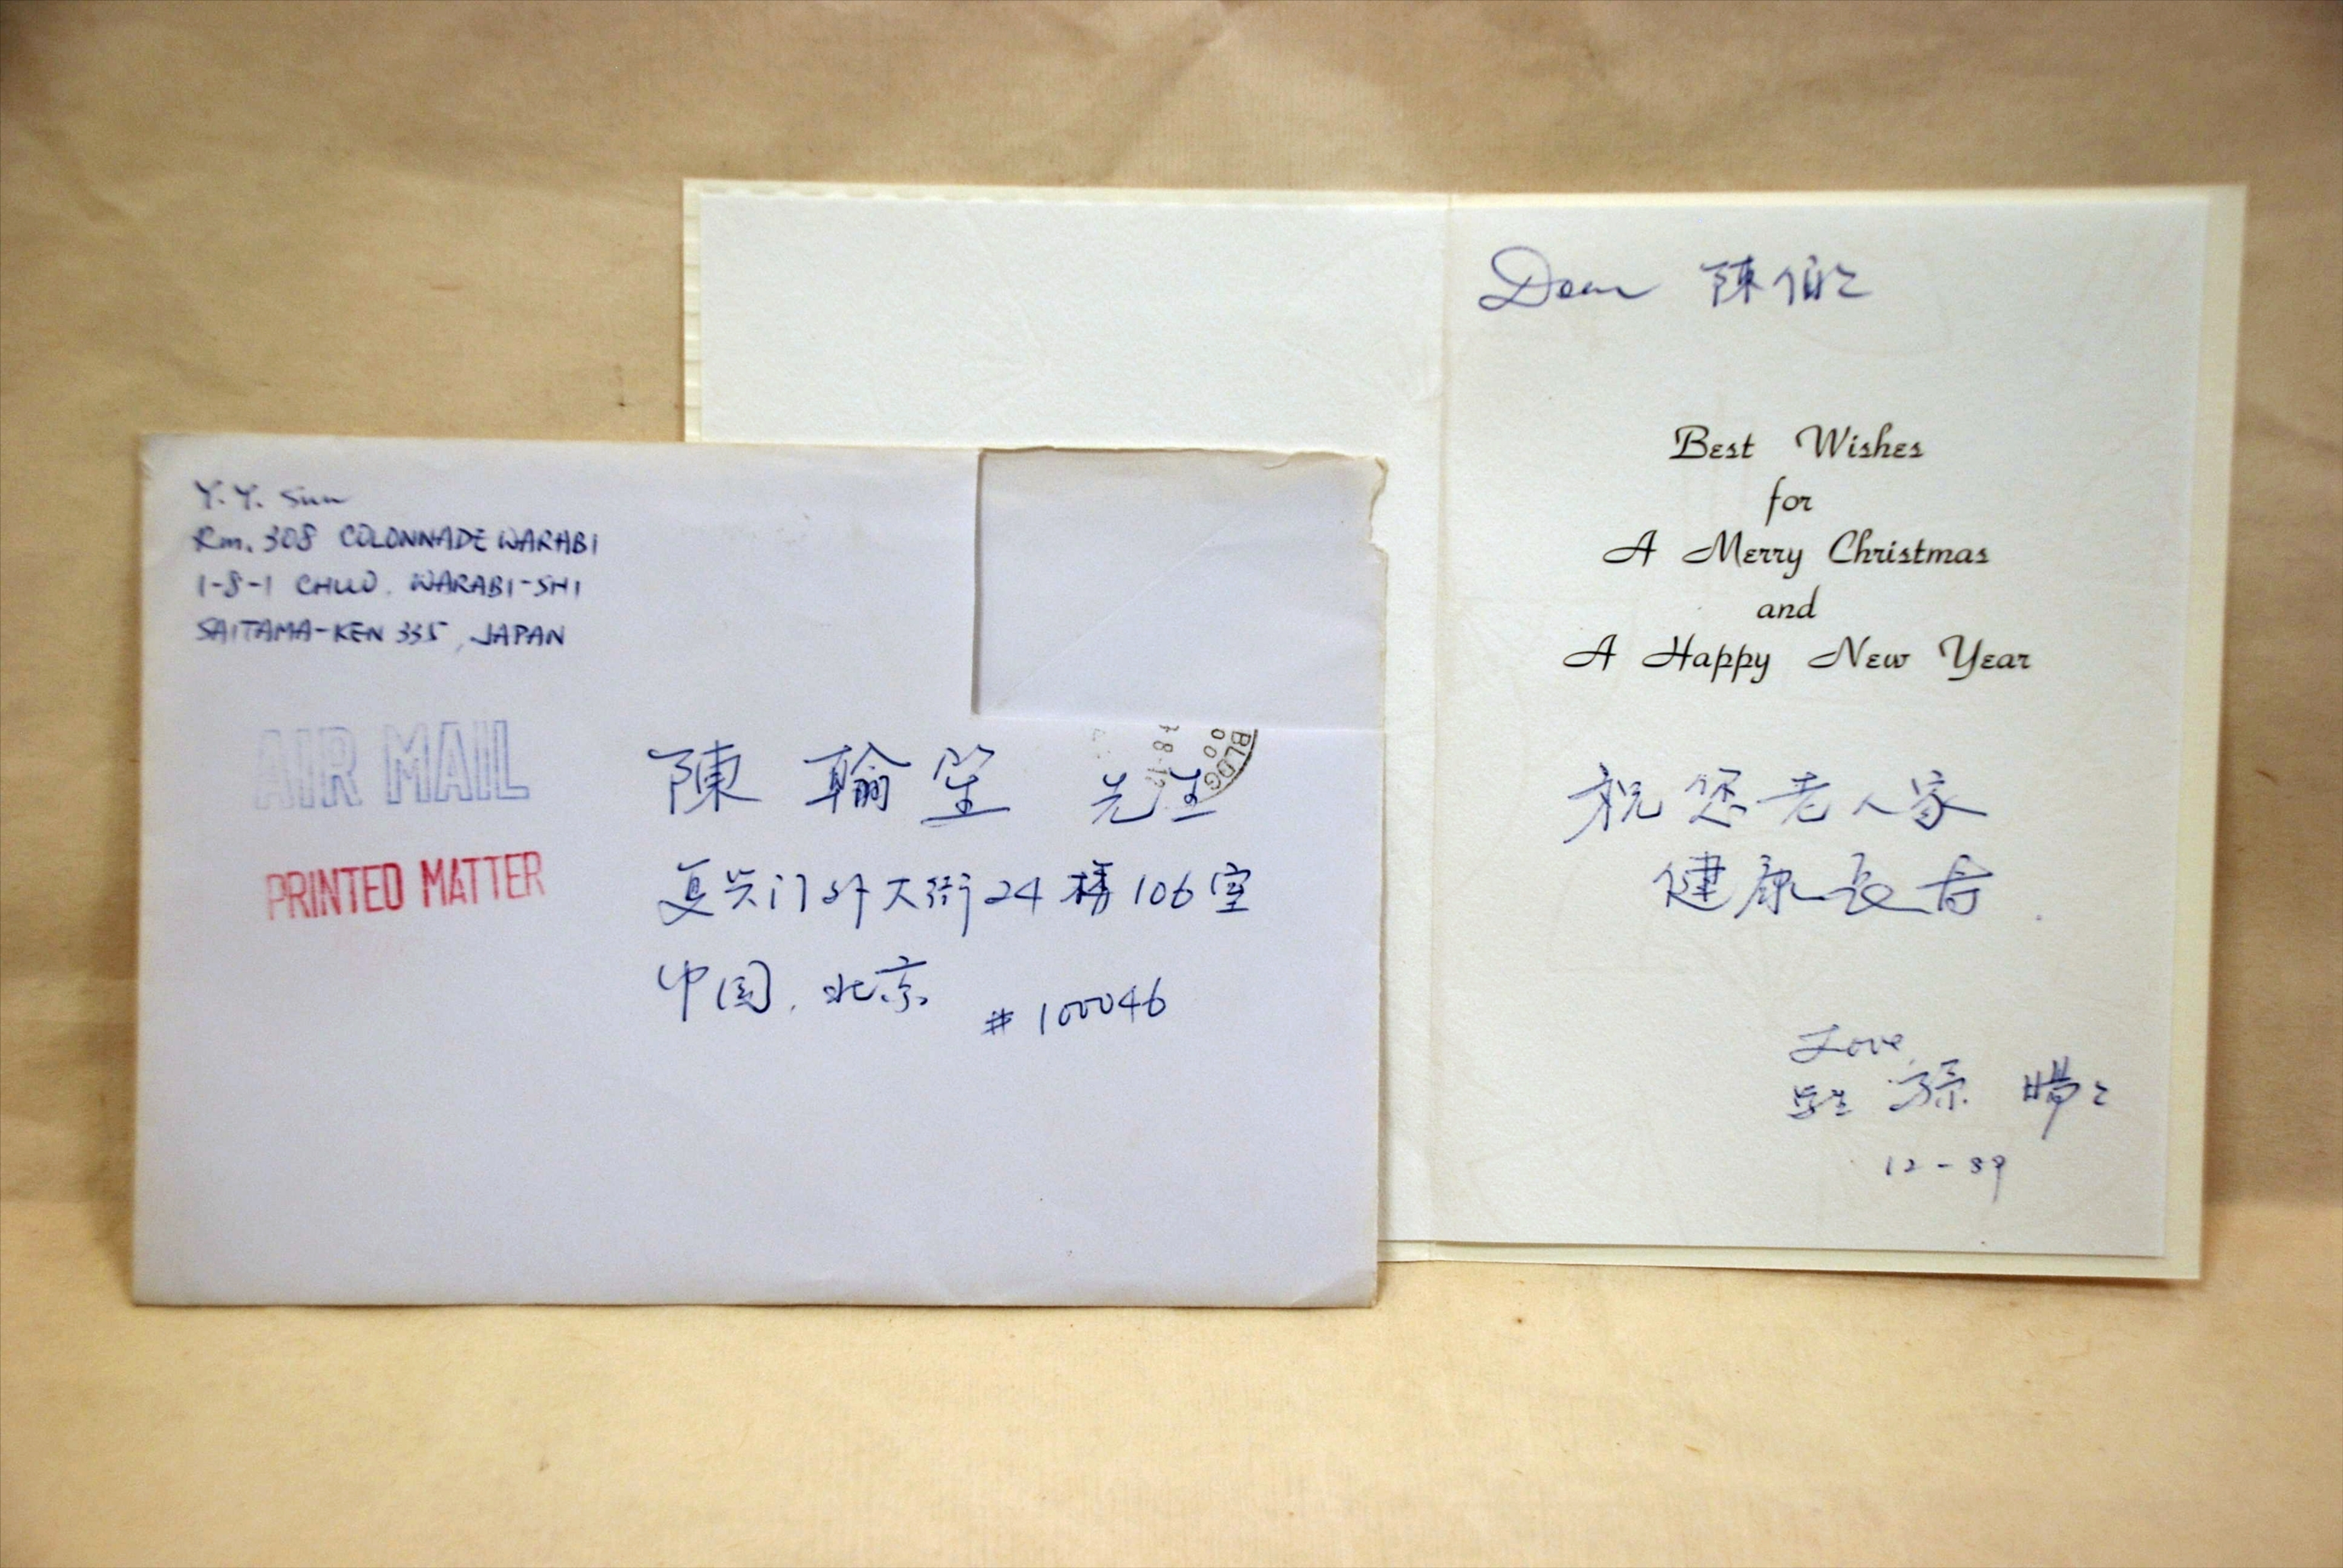 Y. Y. Sun
Rm. 308 COLONNADE WARABI
1-8-1 CHUO. WARABI-SHI
SAITAMA-KEN 335, JAPAN
AIR MAIL
PRINTED MATTER
BLDG
陳翰笙 先生
复兴门外大街24楼106室
中国.北京 #100046
Dear 陳伯伯
Best Wishes
for
A Merry Christmas
and
A Happy New Year
祝您老人家
健康長寿.
Love,
孫
12-89